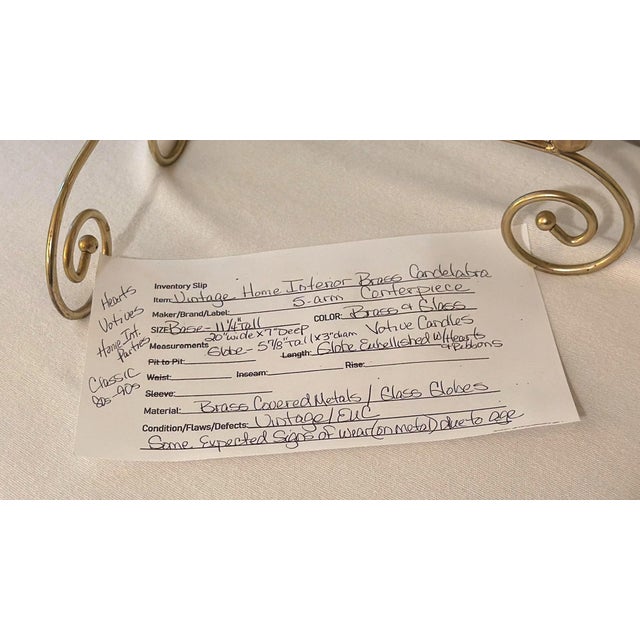 Inventory Slip
Item: Vintage Home Interior Brass Candelabra
5-arm Centerpiece
Maker/Brand/Label: COLOR: Brass & Glass
SIZE Base - 11 1/4" Tall
20" wide x 7" Deep Votive Candles
Measurements Globe - 5 7/8" Tall x 3" diam Length: Globe Embellished w/ Hearts & Ribbons
Pit to Pit: Rise:
Waist: Inseam:
Sleeve:
Material: Brass Covered Metals / Glass Globes
Condition/Flaws/Defects: Vintage / EUC
Some Expected Signs of Wear (on metal) due to age
Hearts
Votives
Home Int.
Parties
Classic
80s-90s